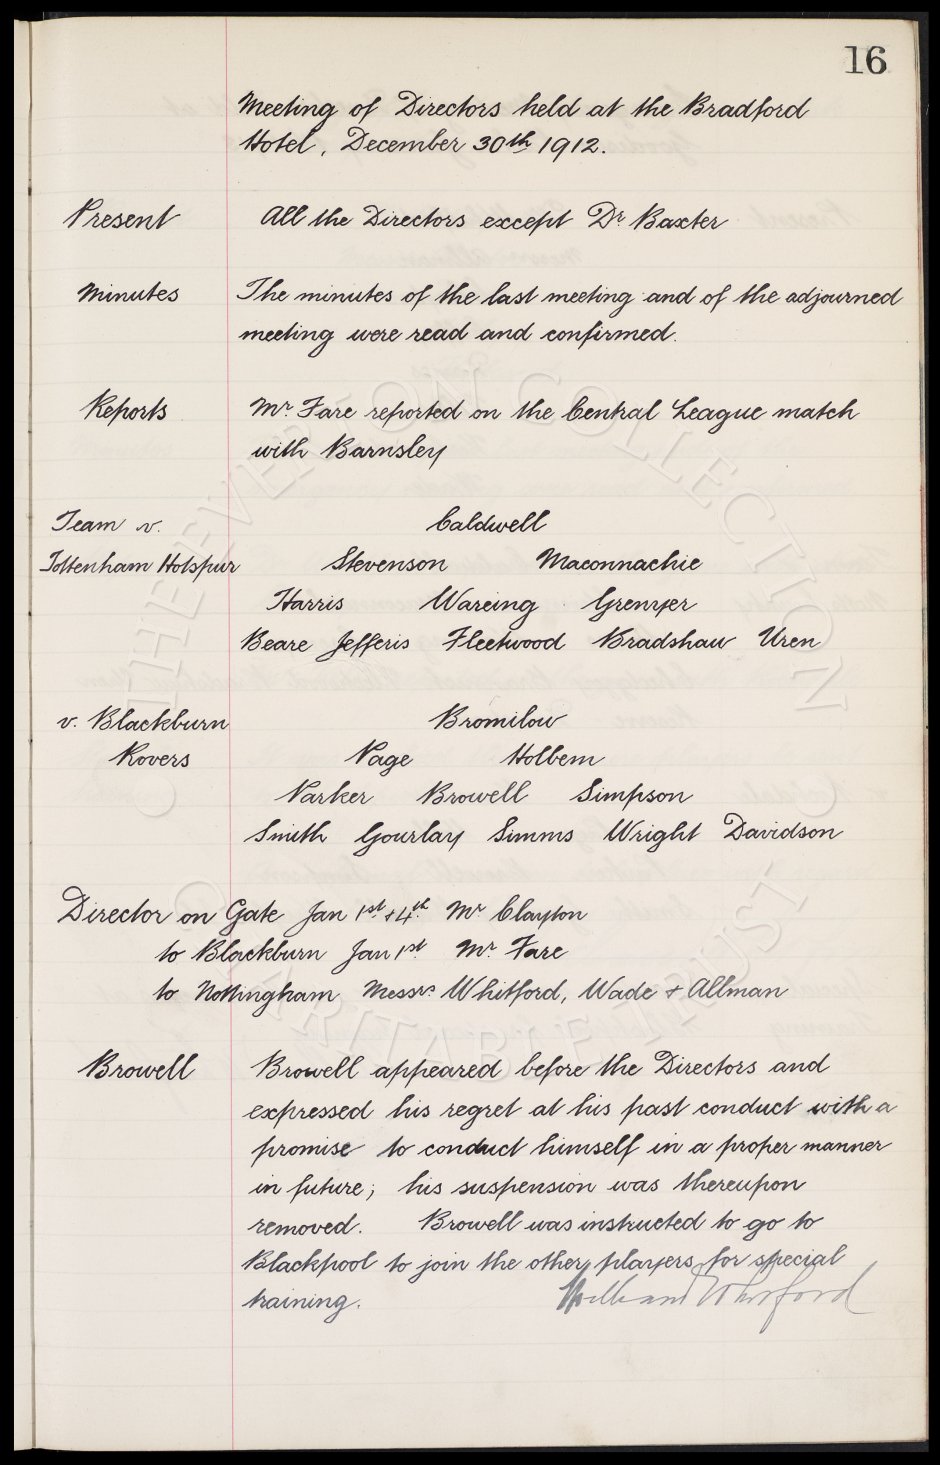 16
Meeting of Directors held at the Bradford
Hotel, December 30th 1912.
Present All the Directors except Dr. Baxter
Minutes The minutes of the last meeting and of the adjourned
meeting were read and confirmed.
Reports Mr. Fare reported on the Central League match
with Barnsley
Team v. Caldwell
Tottenham Hotspur Stevenson Maconnachie
Harris Wareing Grenyer
Beare Jefferis Fleetwood Bradshaw Uren
v. Blackburn Bromilow
Rovers Page Holbem
Parker Browell Simpson
Smith Gourlay Simms Wright Davidson
Director on Gate Jan 1st + 4th. Mr Clayton
to Blackburn Jan 1st Mr. Fare
to Nottingham Messrs. Whitford, Wade + Allman
Browell Browell appeared before the Directors and
expressed his regret at his past conduct with a
promise to conduct himself in a proper manner
in future; his suspension was thereupon
removed. Browell was instructed to go to
Blackpool to join the other players for special
training. William Whitford
© THE EVERTON COLLECTION
© CHARITABLE TRUST